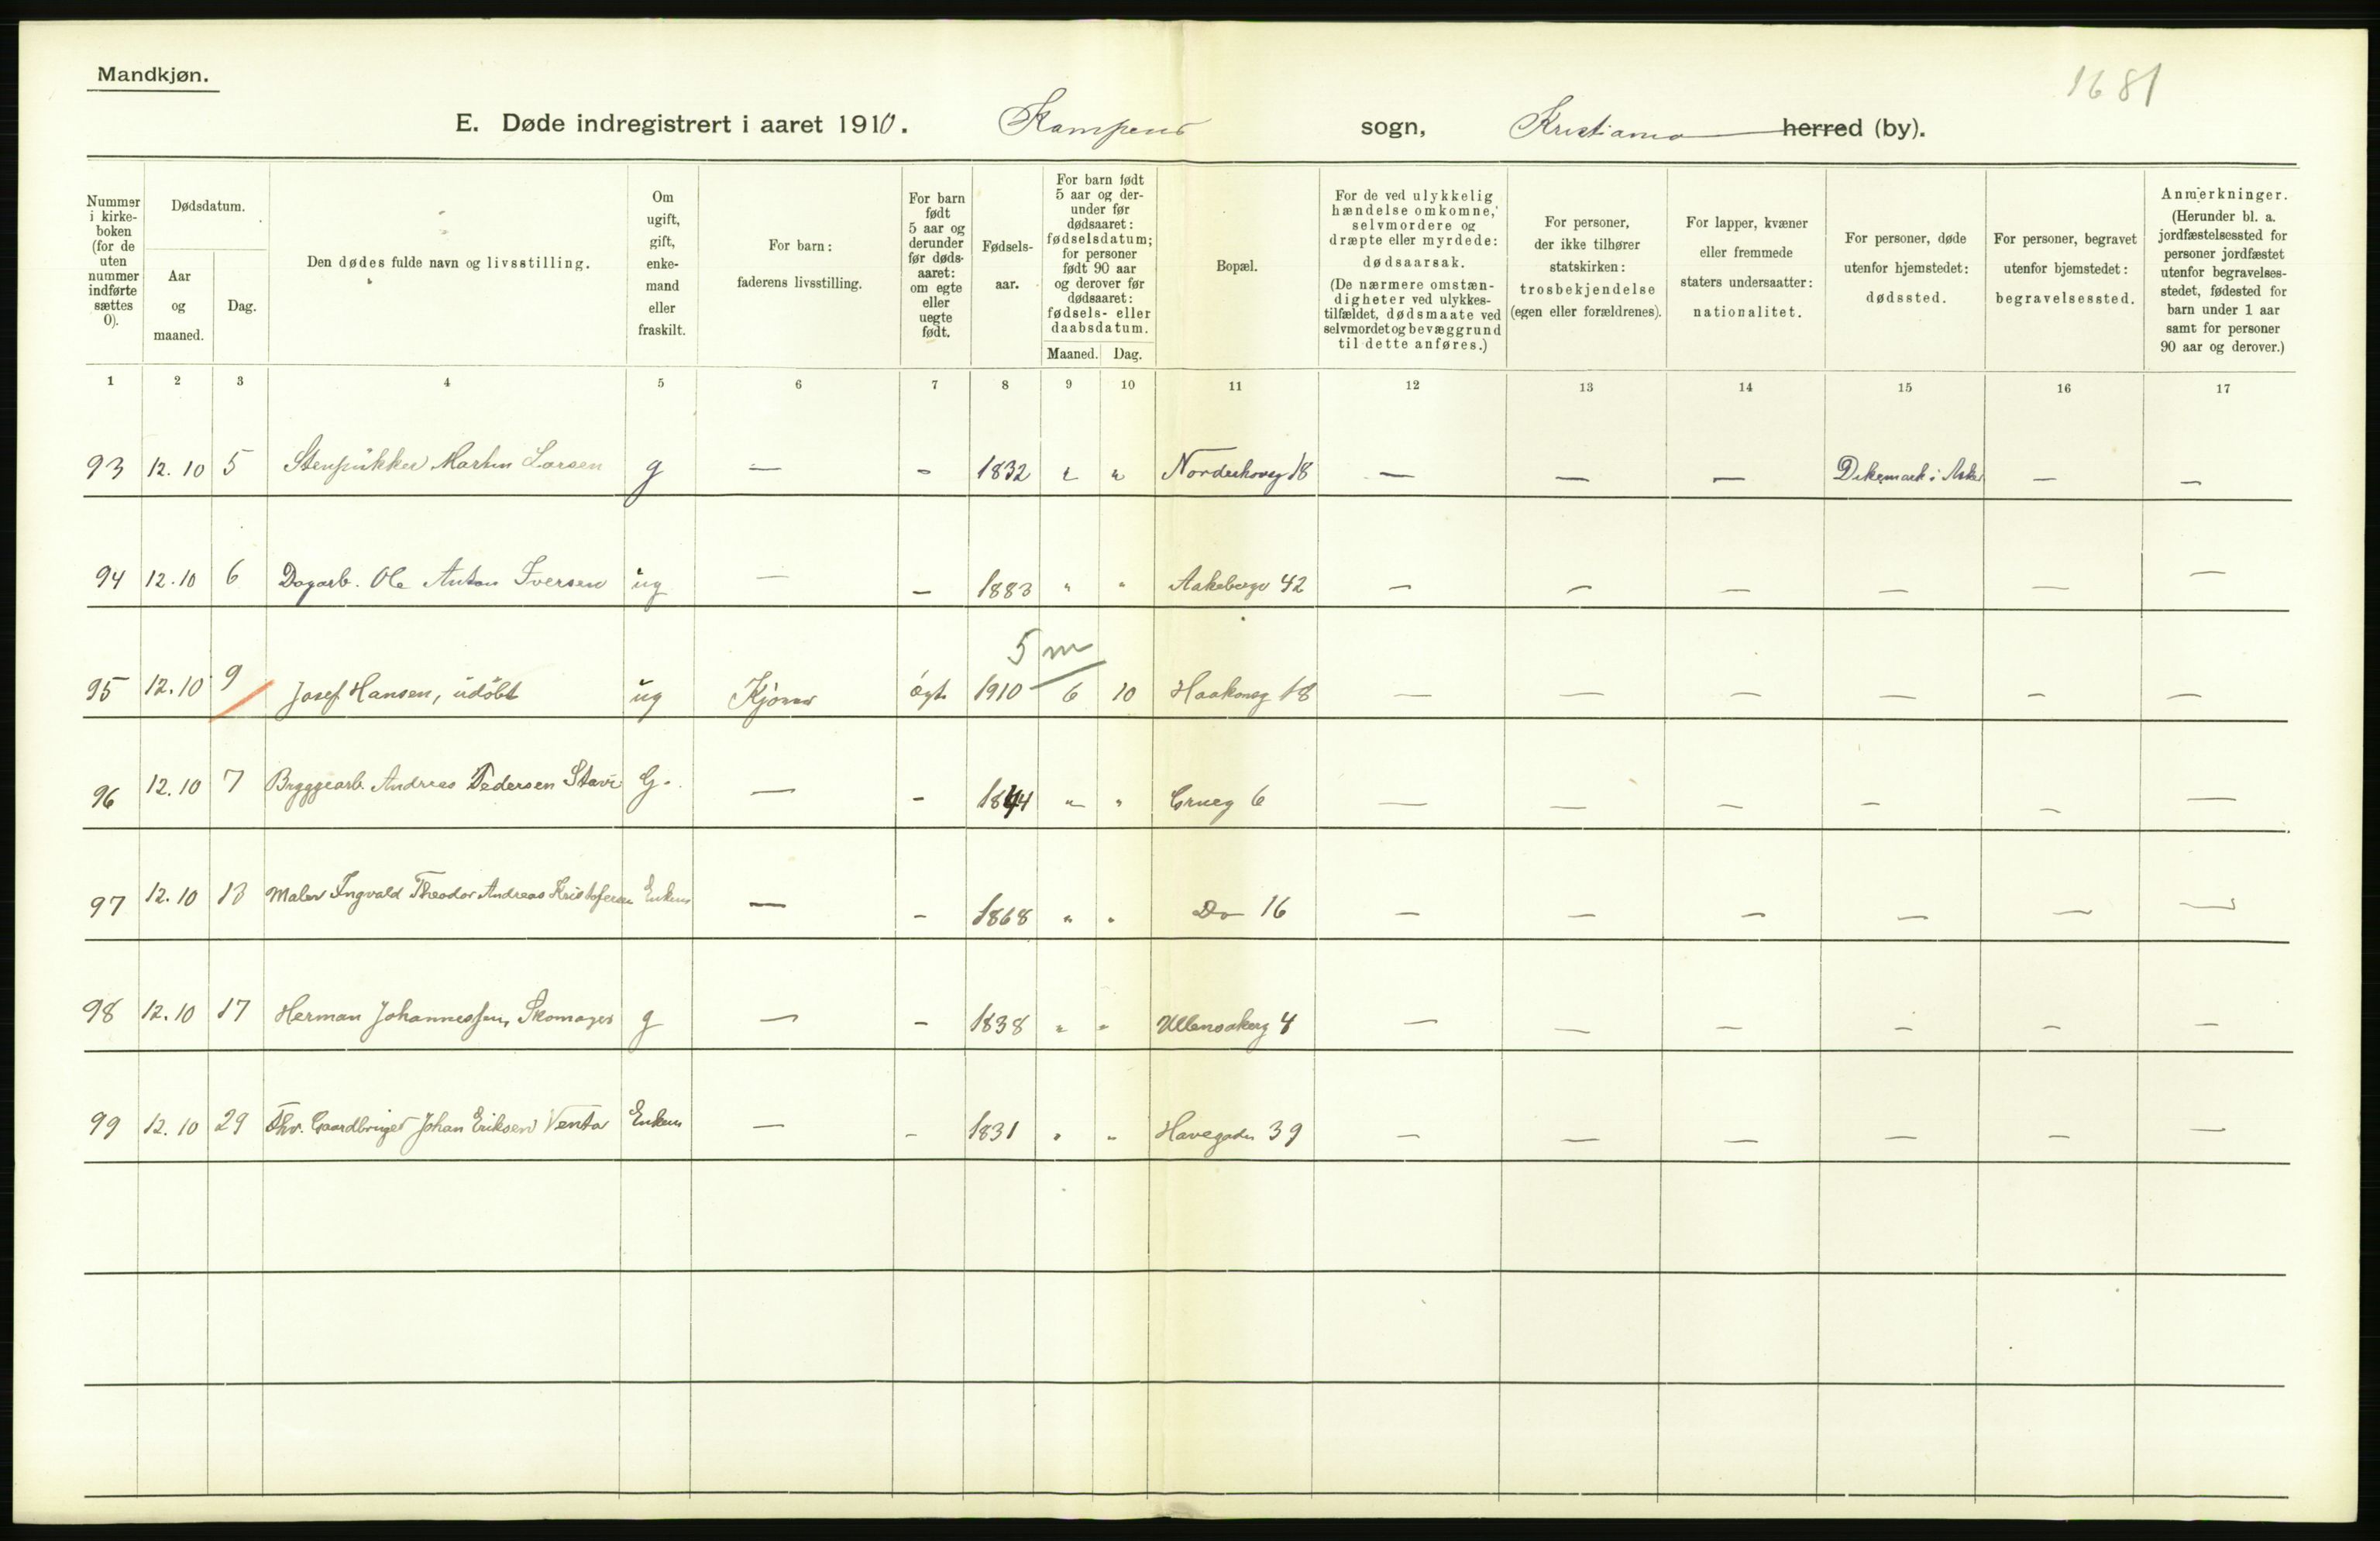 Mandkjøn.
1681
E. Døde indregistrert i aaret 1910. Kampens sogn, Kristiania herred (by).
Nummer i kirkeboken (for de uten nummer indførte sættes 0).
Dødsdatum.
Aar og maaned.
Dag.
Den dødes fulde navn og livsstilling.
Om ugift, gift, enkemand eller fraskilt.
For barn: faderens livsstilling.
For barn født 5 aar og derunder før dødsaaret: om egte eller uegte født.
Fødselsaar.
For barn født 5 aar og derunder før dødsaaret: fødselsdatum; for personer født 90 aar og derover før dødsaaret: fødsels- eller daabsdatum.
Maaned. Dag.
Bopæl.
For de ved ulykkelig hændelse omkomne, selvmordere og dræpte eller myrdede: dødsaarsak. (De nærmere omstændigheter ved ulykkestilfældet, dødsmaate ved selvmordet og bevæggrund til dette anføres.)
For personer, der ikke tilhører statskirken: trosbekjendelse (egen eller forældrenes).
For lapper, kvæner eller fremmede staters undersaatter: nationalitet.
For personer, døde utenfor hjemstedet: dødssted.
For personer, begravet utenfor hjemstedet: begravelsessted.
Anmerkninger. (Herunder bl. a. jordfæstelsessted for personer jordfæstet utenfor begravelsesstedet, fødested for barn under 1 aar samt for personer 90 aar og derover.)
1 2 3 4 5 6 7 8 9 10 11 12 13 14 15 16 17
93 12.10 5 Stenpukker Martin Larsen g — - 1832 " " Norderhovsg 18 — — — Dikemark i Asker — —
94 12.10 6 Dagarb. Ole Anton Iversen ug — - 1883 " " Aakebergv 42 — — — — — —
5 m
95 12.10 9 Josef Hansen, udöbt ug Kjörer ægt 1910 6 10 Haakonsg 18 — — — — — —
96 12.10 7 Bryggearb. Andreas Pedersen Stavi G. — - 1844 " " Brueg 6 — — — — — —
97 12.10 13 Maler Ingvald Theodor Andreas Kristofersen Enkem — - 1868 " " Do 16 — — — — — —
98 12.10 17 Herman Johannessen, Skomager g — - 1838 " " Ullensakerg 4 — — — — — —
99 12.10 29 Fhv. Gaardbruger Johan Eriksen Venta Enkem — - 1831 " " Havegaden 39 — — — — — —